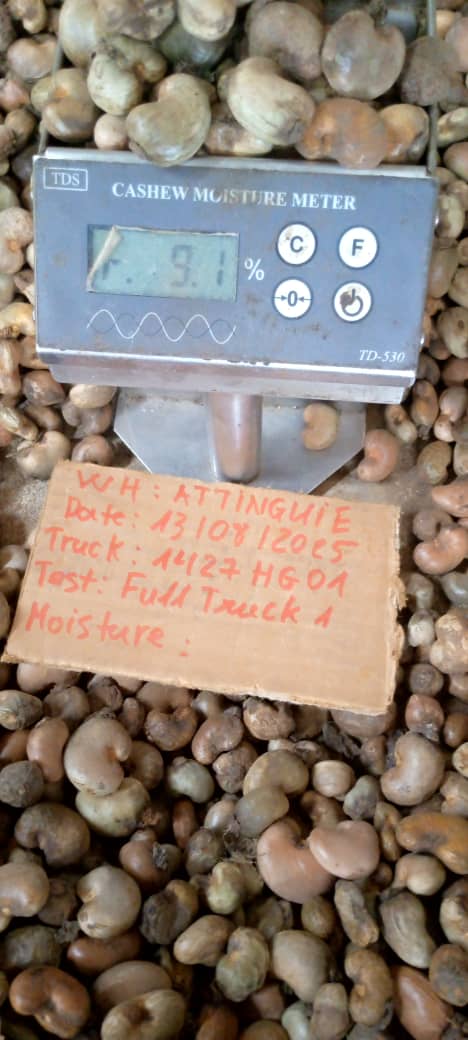 TDS
CASHEW MOISTURE METER
r. 9.1 %
°C F
→0←
TD-530
WH: ATTINGUIE
Date: 13/08/2025
Truck: 1427 HG01
Test: Full Truck 1
Moisture :